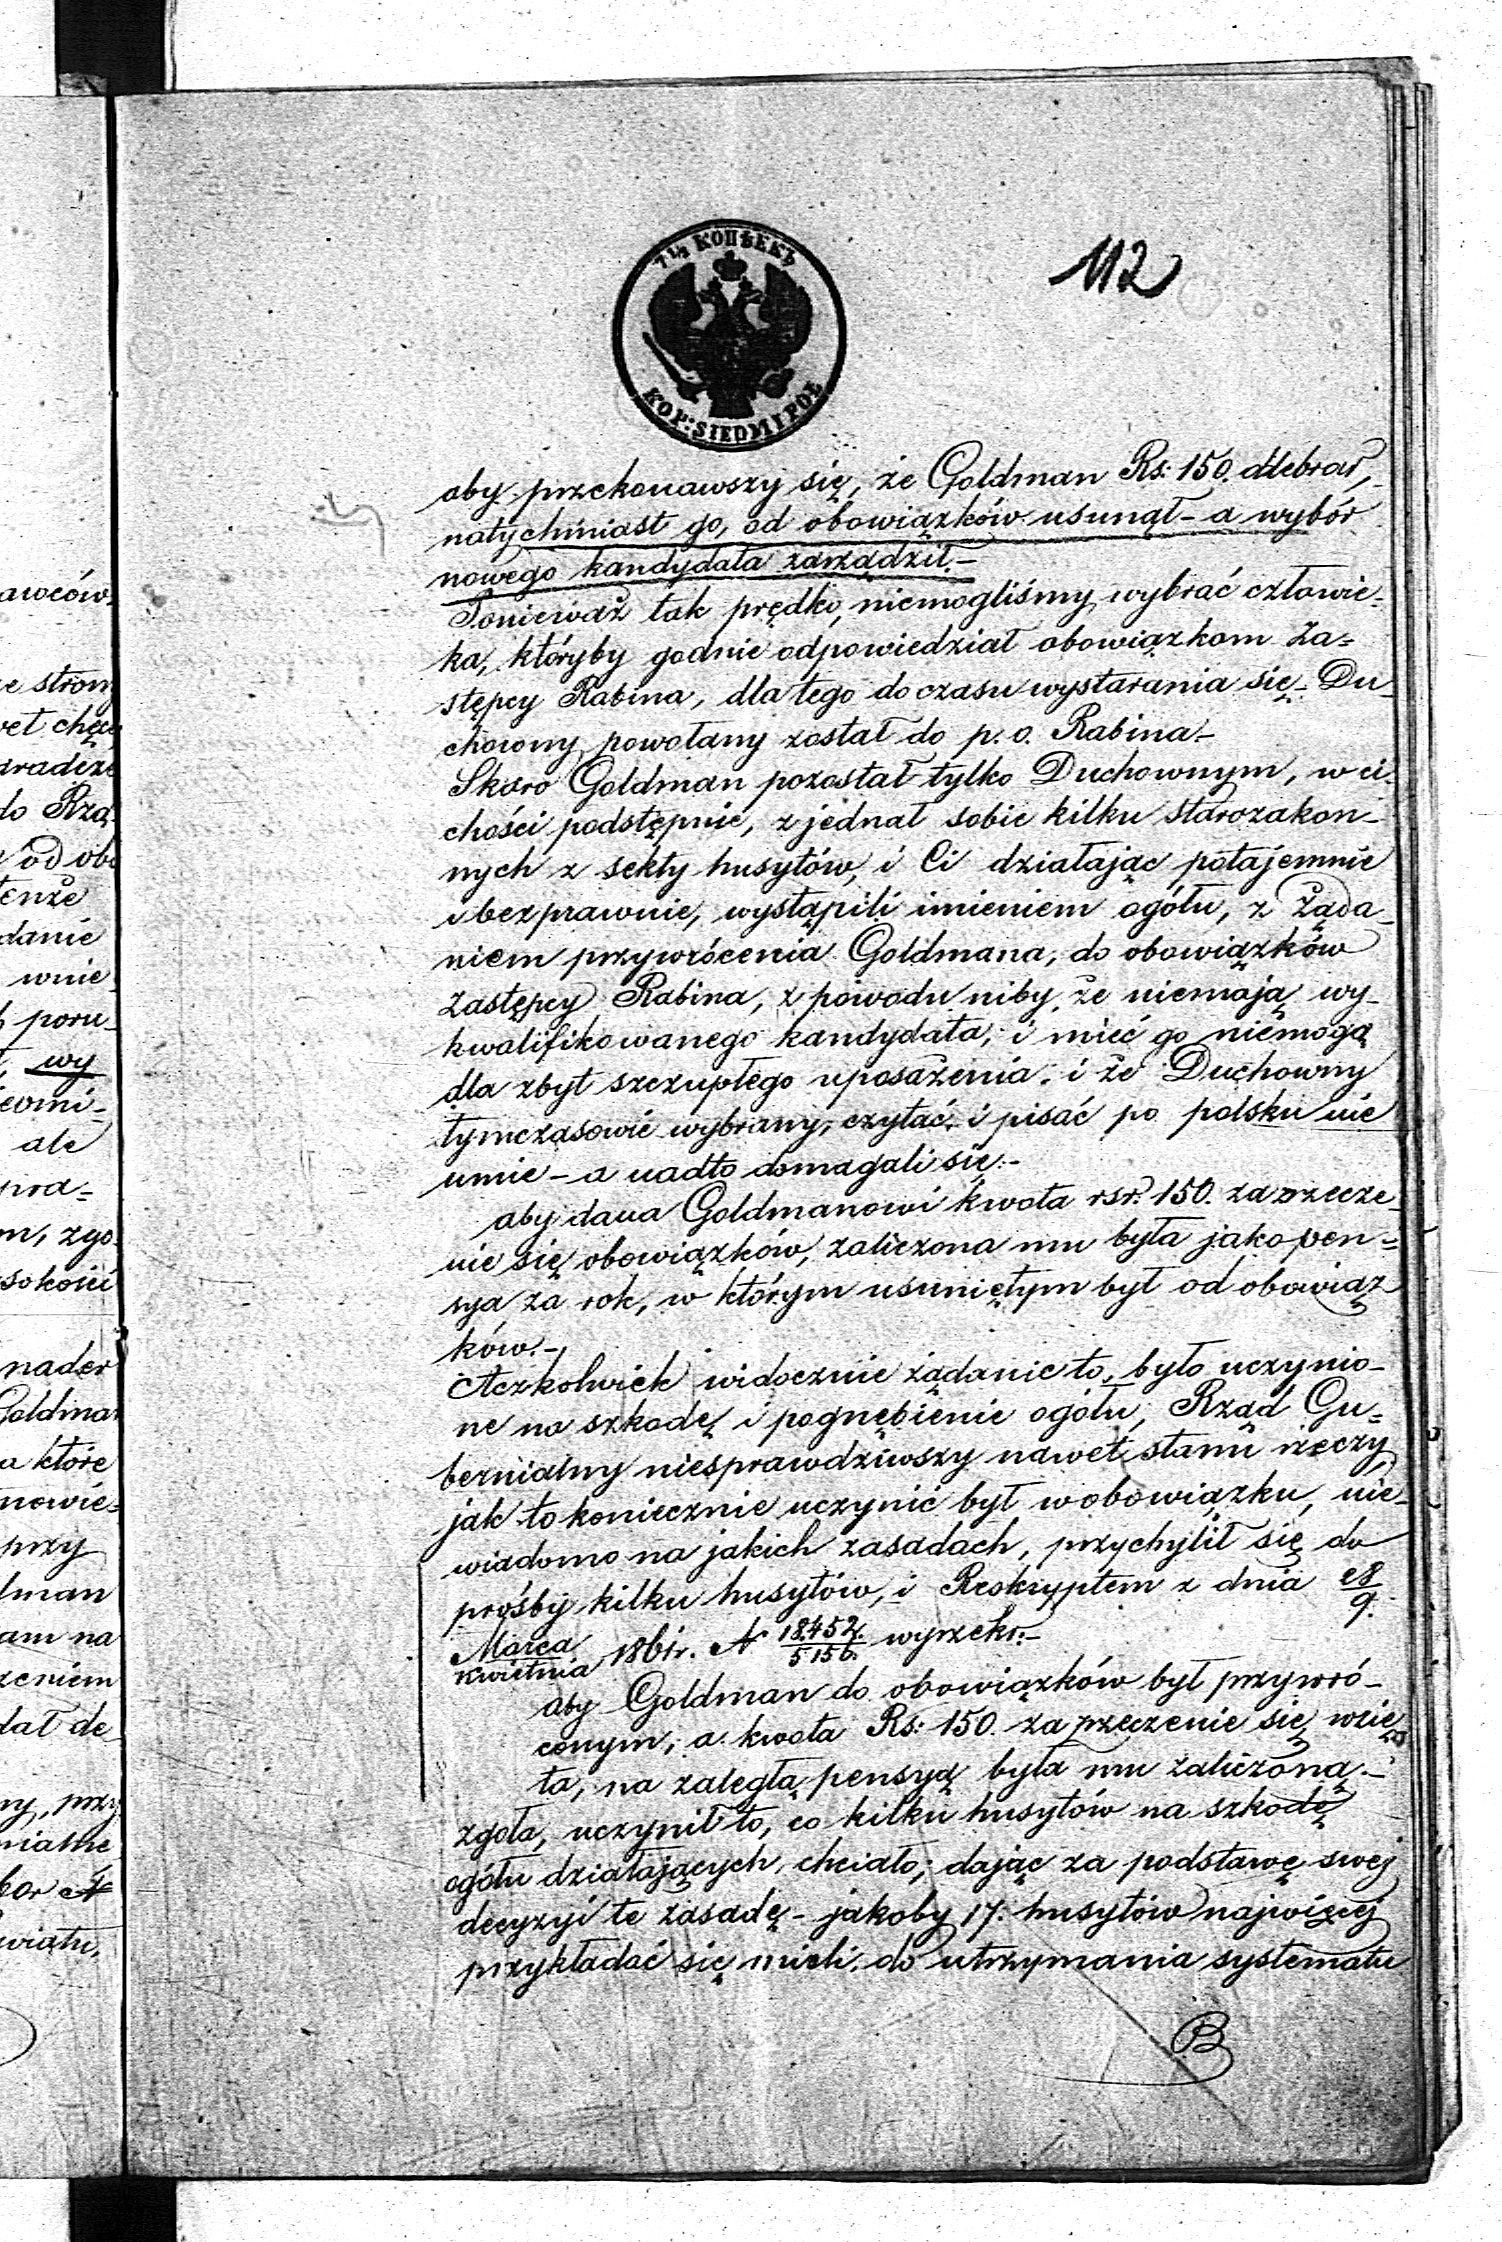 awców
ie stron
wet chęć
gradize
do Rzą
od obo
tenże
danie
wnie
poru
wy
ale
pra=
m, zgo
sokości
nader
Goldman
a które
nowie=
przy
lman
am na
zeniem
dał de
ny, przy
nialne
bor N
wiatu,
7½ КОПѢЕКЪ
KOP: SIEDM I PÓŁ
112
aby przekonawszy się, że Goldman Rs: 150. odebrał,
natychmiast go, od obowiązków usunął - a wybór
nowego kandydata zarządził.-
Ponieważ tak prędko, niemogliśmy wybrać człowie-
ka, któryby godnie odpowiedział obowiązkom Za=
stępcy Rabina, dla tego do czasu wystarania się - Du-
chowny powołany został do p. o. Rabina -
Skoro Goldman pozostał tylko Duchownym, w ci-
chości podstępnie, zjednał sobie kilku starozakon-
nych z sekty husytów, i Ci działając potajemnie
i bezprawnie, wystąpili imieniem ogółu, z żąda-
niem przywrócenia Goldmana, do obowiązków
Zastępcy Rabina, z powodu niby, że niemają wy-
kwalifikowanego kandydata, i mieć go niemogą
dla zbyt szczupłego uposażenia, i że Duchowny
tymczasowie wybrany, czytać i pisać po polsku nie
umie - a nadto domagali się:-
aby dana Goldmanowi kwota rsr. 150. za zrzecze-
nie się obowiązków, zaliczona mu była jako pen=
sya za rok, w którym usuniętym był od obowiąz
ków.-
Aczkolwiek widocznie żądanie to, było uczynio-
ne na szkodę i pognębienie ogółu, Rząd Gu=
bernialny niesprawdziwszy nawet stanu rzeczy,
jak to koniecznie uczynić był w obowiązku, nie-
wiadomo na jakich zasadach, przychylił się do
prośby kilku husytów, i Reskryptem z dnia 28/9.
Marca/Kwietnia 1861r. N 18452/5156. wyrzekł:-
aby Goldman do obowiązków był przywró-
conym, a kwota Rs: 150. za zrzeczenie się wzię
ta, na zaległą pensyą była mu zaliczoną.-
zgoła, uczynił to, co kilku husytów na szkodę
ogółu działających, chciało; dając za podstawę swej
decyzyi te zasadę - jakoby 17. husytów najwięcej
przykładać się mieli, do utrzymania systematu
B